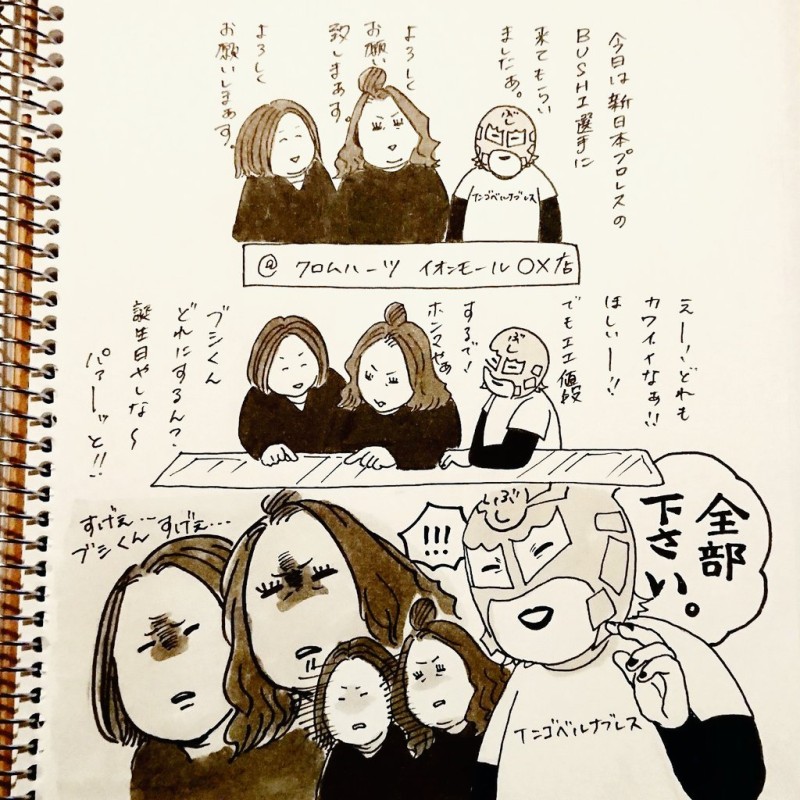 今日は新日本プロレスの
BUSHI選手に
来てもらい
ましたぁ。
よろしく
お願い
致しまぁす。
よろしく
お願いしまぁす。
ぶし
インゴベルナブレス
@ クロムハーツ イオンモール○×店
えー、どれも
カワイイなぁ!!
ほしいー!!
でもエエ値段
するで!
ホンマやぁ
ブシくん
どれにするん?
誕生日やしな〜
パァーッと!!
ぶし
全部
下さい。
!!!
ぶし
すげぇ… すげぇ…
ブシくん
インゴベルナブレス